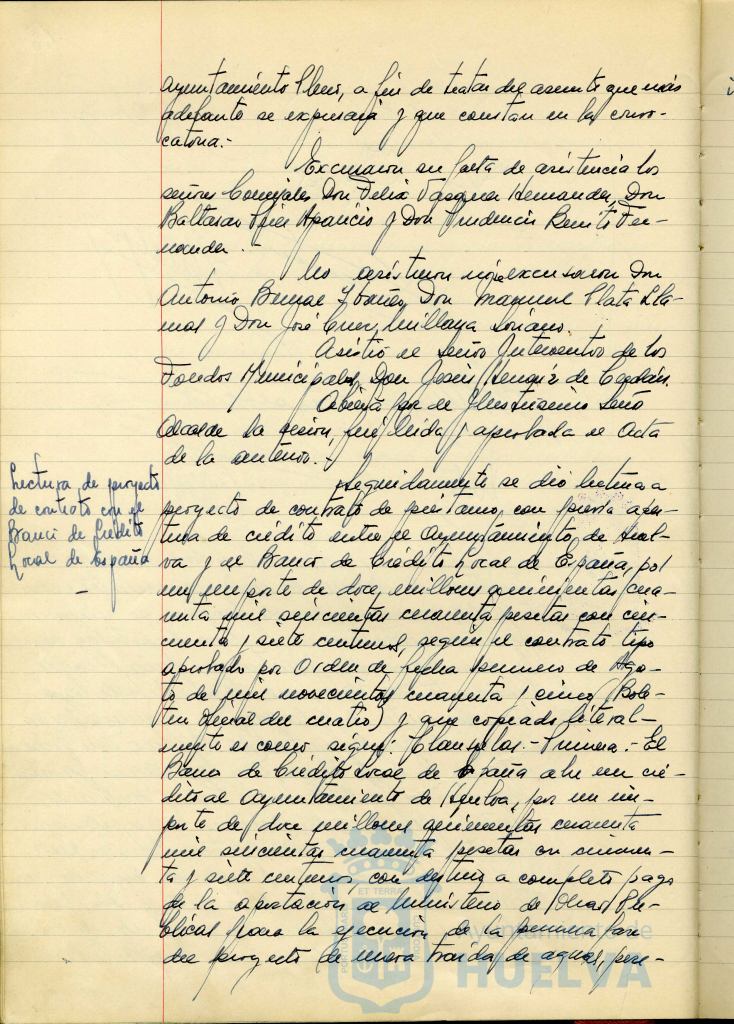 ayuntamiento Pleno, a fin de tratar del asunto que más
adelante se expresará y que constan en la convo-
catoria.-
Excusaron su falta de asistencia los
señores Concejales Don Felix Vazquez Hernandez, Don
Baltasar Aparicio y Don Prudencio Benito Fer-
nandez.
No asistieron ni excusaron Don
Antonio Bernal Ybañez, Don Manuel Plata Lla-
nos y Don José Cruz Millaya Soriano.
Asistió el Señor Interventor de los
Fondos Municipales, Don Jesús de
Abierta por el Ilustrisimo Señor
Alcalde la sesion, fué leida y aprobada el Acta
de la anterior.-
Lectura de proyecto
de contrato con el
Banco de Crédito
Local de España
Seguidamente se dió lectura a
proyecto de contrato de préstamo, con previa aper-
tura de crédito entre el Ayuntamiento de Huel-
va y el Banco de Crédito Local de España, por
un importe de doce millones quinientas cua-
renta mil seiscientas cuarenta pesetas con cin-
cuenta y siete centimos, según el contrato tipo
aprobado por Orden de fecha primero de Agos-
to de mil novecientos cuarenta y cinco (Bole-
tin Oficial del cuatro) y que copiado literal-
mente es como sigue: Clausulas.- Primera.- El
Banco de Crédito Local de España abre un cré-
dito al Ayuntamiento de Huelva, por un im-
porte de doce millones quinientas cuarenta
mil seiscientas cuarenta pesetas con cincuen-
ta y siete centimos, con destino a completo pago
de la aportación al Ministerio de Obras Pú-
blicas para la ejecución de la primera fase
del proyecto de nueva traida de aguas, pere-
Ayuntamiento de
HUELVA